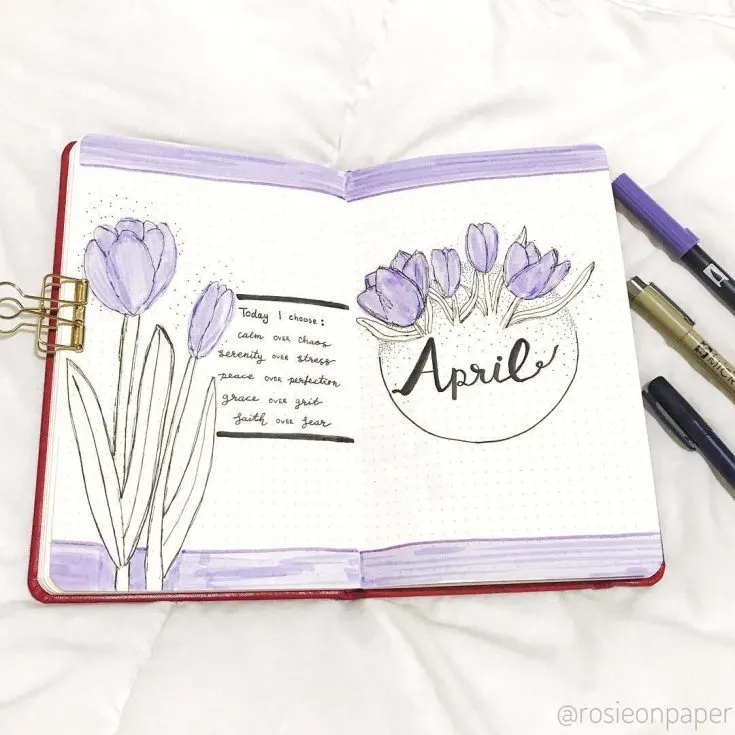 Today I choose:
calm over chaos
serenity over stress
peace over perfection
grace over grit
faith over fear
April
MICR
@rosieonpaper